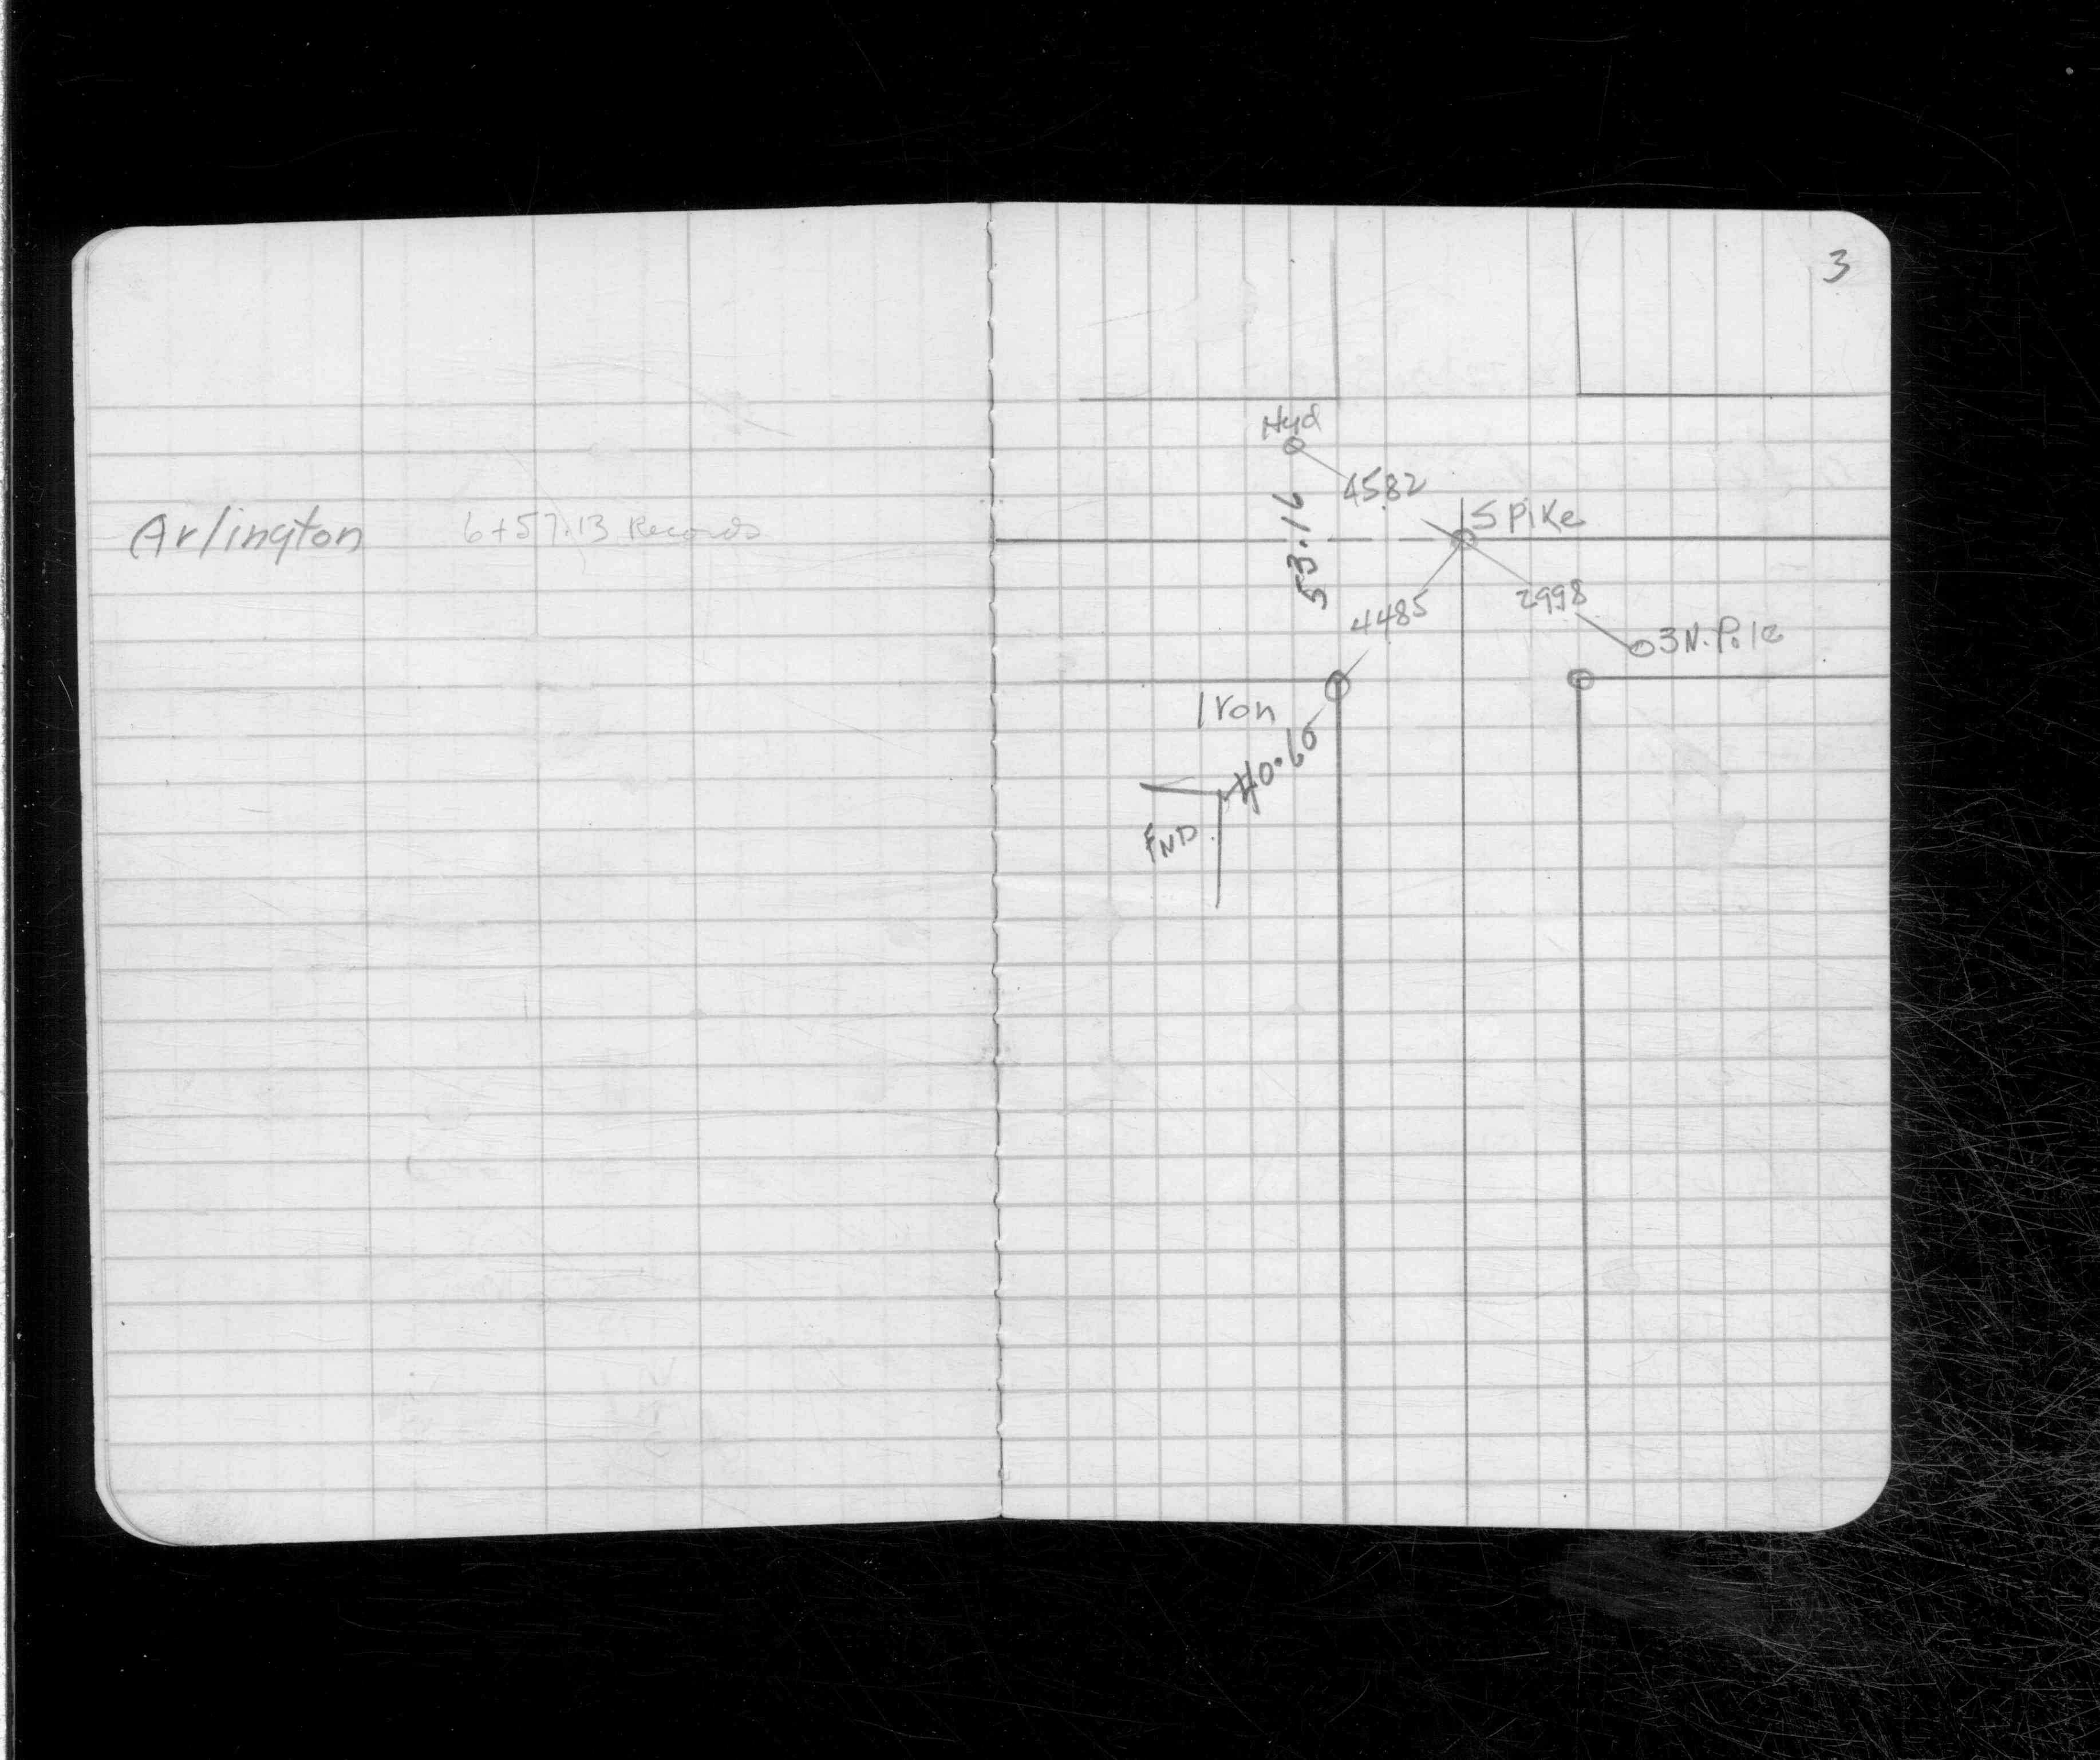 3
Arlington 6+57.13 Records
Hyd
4582
53.16
Spike
4485
2998
3 N. Pole
Iron
40.60
FND.